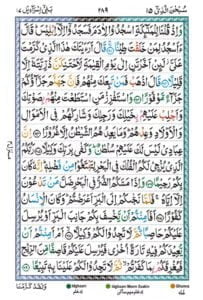 سُبْحٰنَ الَّذِيْ ١٥ ٢٨٩ بَنِيْٓ اِسْرَآءِيْلَ ١٧
وَاِذْ قُلْنَا لِلْمَلٰٓئِكَةِ اسْجُدُوْا لِاٰدَمَ فَسَجَدُوْٓا اِلَّآ اِبْلِيْسَ قَالَ
ءَاَسْجُدُ لِمَنْ خَلَقْتَ طِيْنًا ۝ قَالَ اَرَءَيْتَكَ هٰذَا الَّذِيْ كَرَّمْتَ
عَلَيَّ لَئِنْ اَخَّرْتَنِ اِلٰى يَوْمِ الْقِيٰمَةِ لَاَحْتَنِكَنَّ ذُرِّيَّتَهٗٓ اِلَّا
قَلِيْلًا ۝ قَالَ اذْهَبْ فَمَنْ تَبِعَكَ مِنْهُمْ فَاِنَّ جَهَنَّمَ جَزَآؤُكُمْ
جَزَآءً مَّوْفُوْرًا ۝ وَاسْتَفْزِزْ مَنِ اسْتَطَعْتَ مِنْهُمْ بِصَوْتِكَ
وَاَجْلِبْ عَلَيْهِمْ بِخَيْلِكَ وَرَجِلِكَ وَشَارِكْهُمْ فِي الْاَمْوَالِ
وَالْاَوْلَادِ وَعِدْهُمْ وَمَا يَعِدُهُمُ الشَّيْطٰنُ اِلَّا غُرُوْرًا ۝ اِنَّ
عِبَادِيْ لَيْسَ لَكَ عَلَيْهِمْ سُلْطٰنٌ وَكَفٰى بِرَبِّكَ وَكِيْلًا ۝ رَبُّكُمُ
الَّذِيْ يُزْجِيْ لَكُمُ الْفُلْكَ فِي الْبَحْرِ لِتَبْتَغُوْا مِنْ فَضْلِهٖ اِنَّهٗ كَانَ
بِكُمْ رَحِيْمًا ۝ وَاِذَا مَسَّكُمُ الضُّرُّ فِي الْبَحْرِ ضَلَّ مَنْ تَدْعُوْنَ
اِلَّآ اِيَّاهُ فَلَمَّا نَجّٰىكُمْ اِلَى الْبَرِّ اَعْرَضْتُمْ وَكَانَ الْاِنْسَانُ
كَفُوْرًا ۝ اَفَاَمِنْتُمْ اَنْ يَّخْسِفَ بِكُمْ جَانِبَ الْبَرِّ اَوْ يُرْسِلَ
عَلَيْكُمْ حَاصِبًا ثُمَّ لَا تَجِدُوْا لَكُمْ وَكِيْلًا ۝ اَمْ اَمِنْتُمْ اَنْ
يُّعِيْدَكُمْ فِيْهِ تَارَةً اُخْرٰى فَيُرْسِلَ عَلَيْكُمْ قَاصِفًا مِّنَ الرِّيْحِ
فَيُغْرِقَكُمْ بِمَا كَفَرْتُمْ ثُمَّ لَا تَجِدُوْا لَكُمْ عَلَيْنَا بِهٖ تَبِيْعًا ۝
وَلَقَدْ كَرَّمْنَا